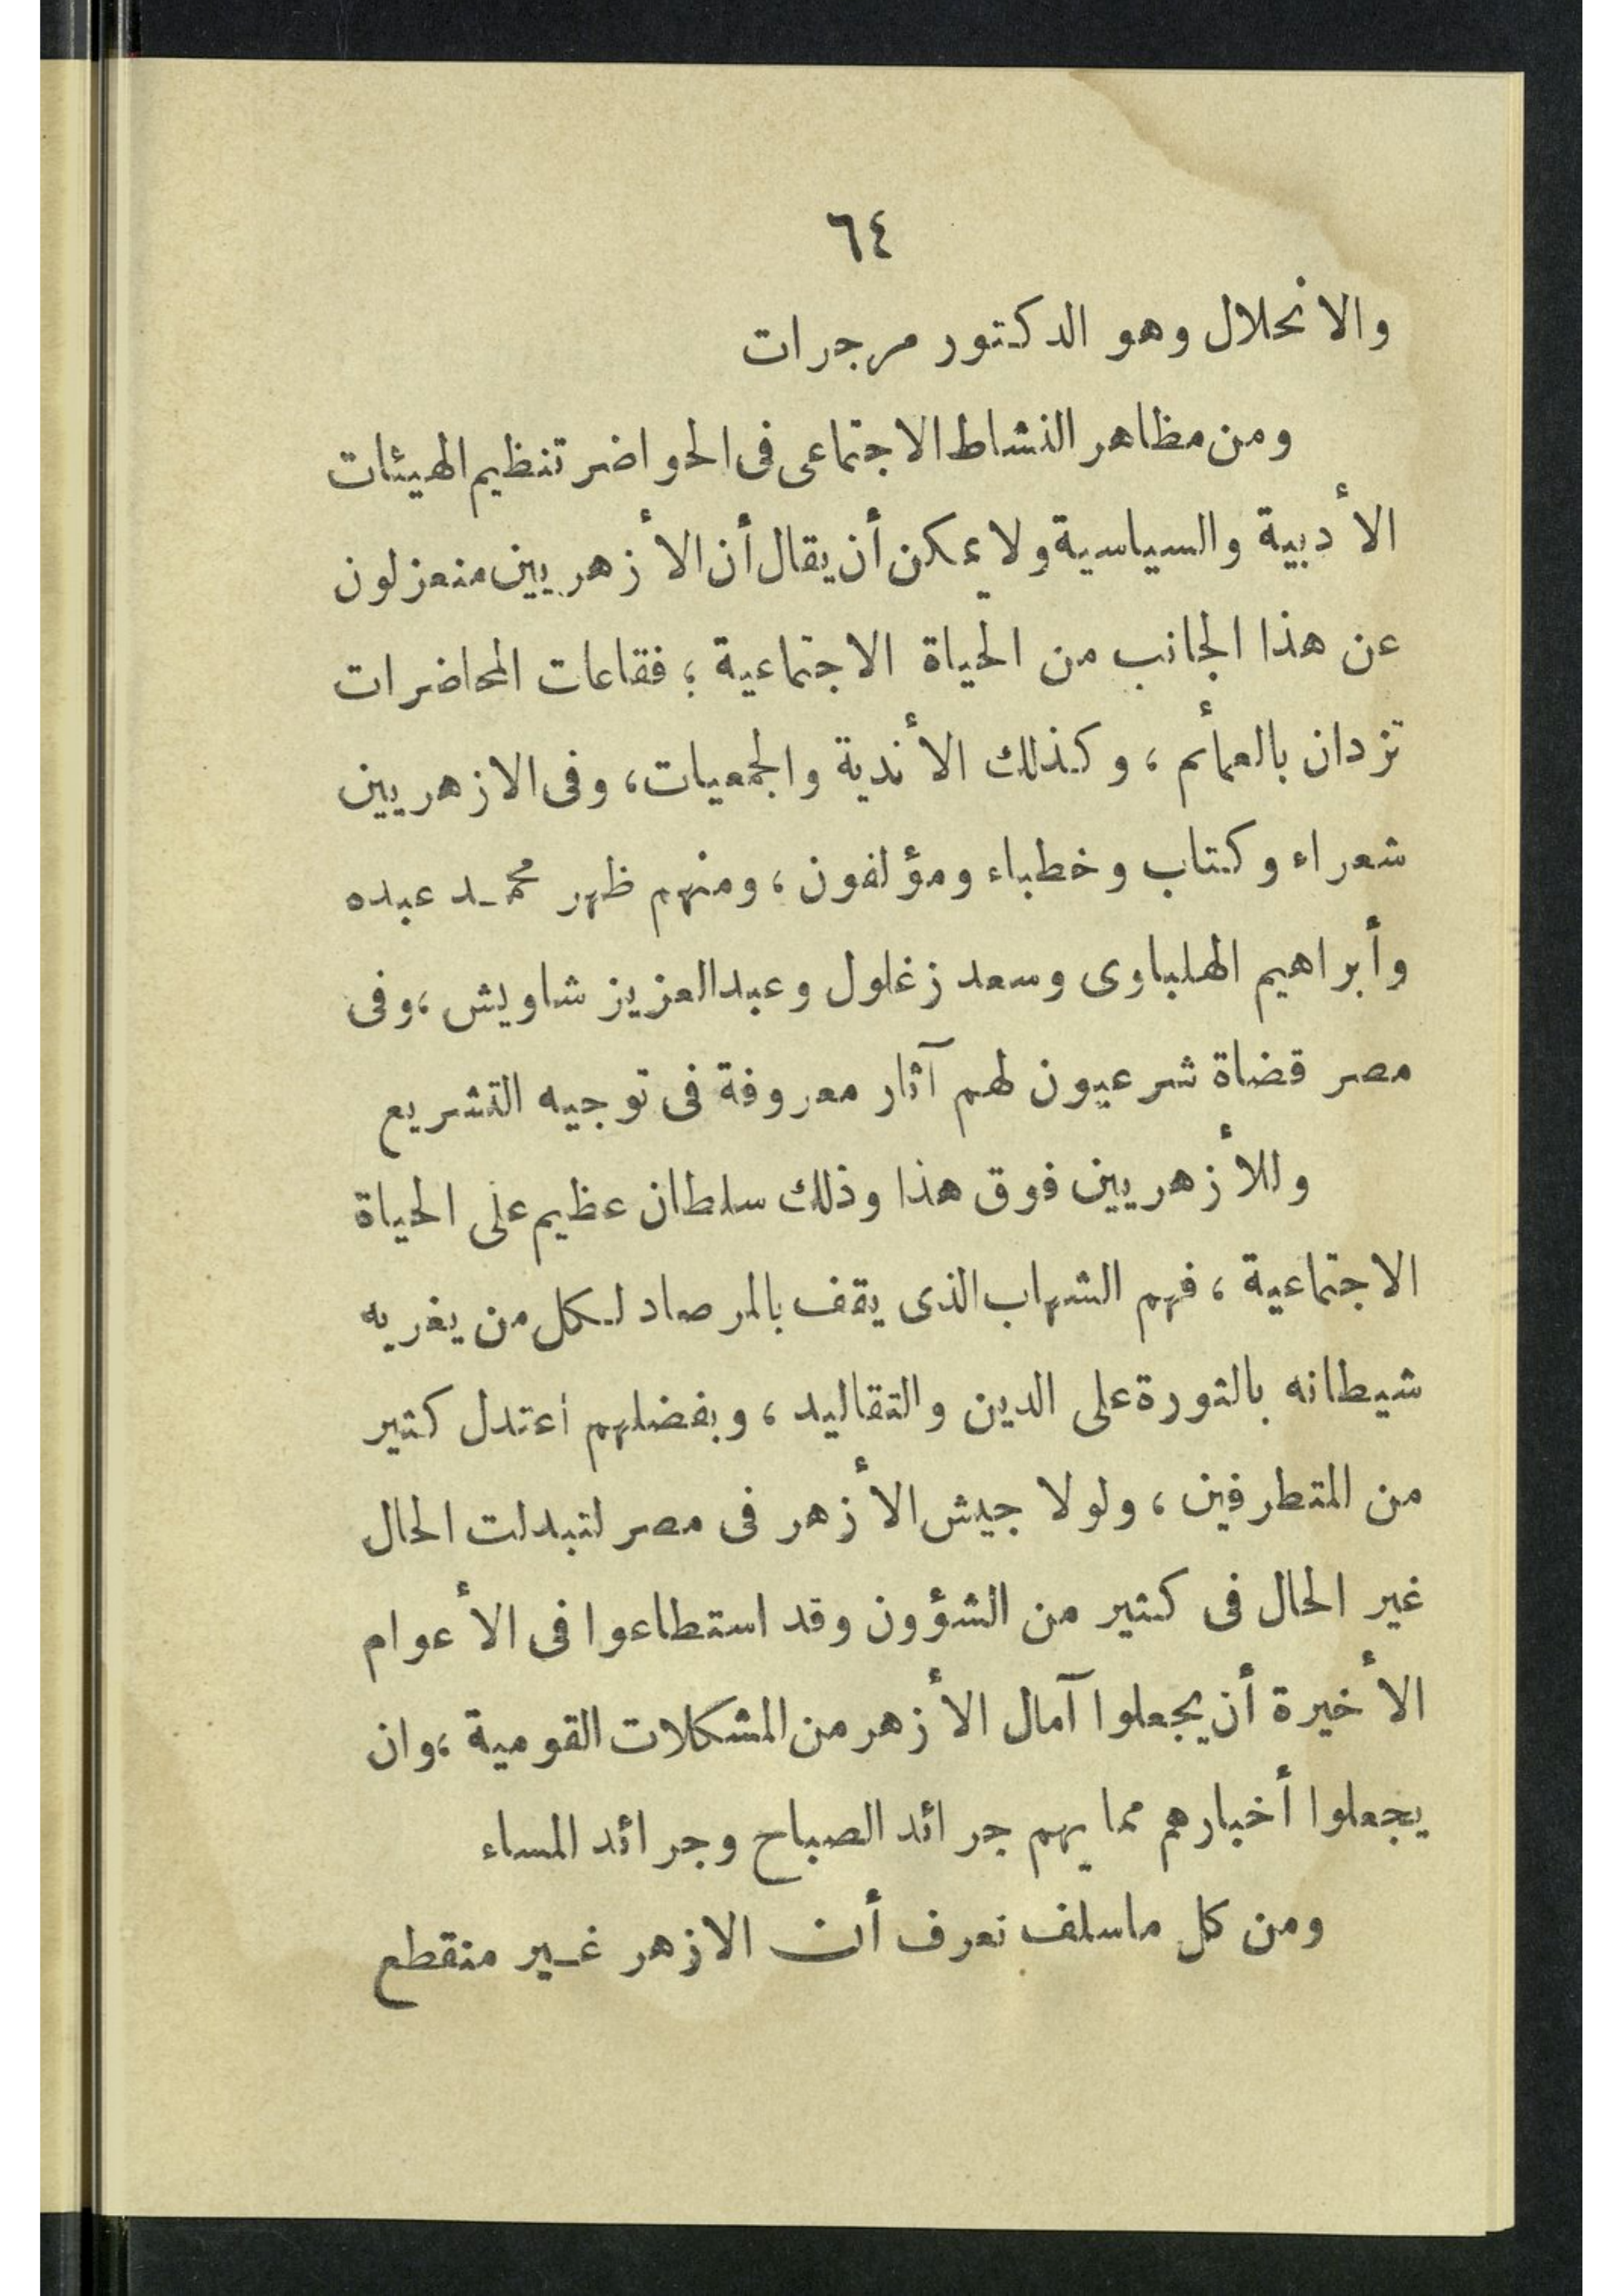 ٦٤
والانحلال وهو الدكتور مرجرات
ومن مظاهر النشاط الاجتماعى فى الحواضر تنظيم الهيئات
الأدبية والسياسية ولا يمكن أن يقال أن الأزهريين منعزلون
عن هذا الجانب من الحياة الاجتماعية ؛ فقاعات المحاضرات
تزدان بالعمأئم ، وكذلك الأندية والجمعيات، وفى الازهريين
شعراء وكتاب وخطباء ومؤلفون ، ومنهم ظهر محمد عبده
وأبراهيم الهلباوى وسعد زغلول وعبدالعزيز شاويش ،وفى
مصر قضاة شرعيون لهم آثار معروفة فى توجيه التشريع
وللأزهريين فوق هذا وذلك سلطان عظيم على الحياة
الاجتماعية ، فهم الشهاب الذى يقف بالمرصاد لكل من يغريه
شيطانه بالثورة على الدين والتقاليد ، وبفضلهم أعتدل كثير
من المتطرفين ، ولولا جيش الأزهر فى مصر لتبدلت الحال
غير الحال فى كثير من الشؤون وقد استطاعوا فى الأعوام
الأخيرة أن يجعلوا آمال الأزهر من المشكلات القومية ،وان
يجعلوا أخبارهم مما يهم جرائد الصباح وجرائد المساء
ومن كل ماسلف نعرف أن الازهر غير منقطع